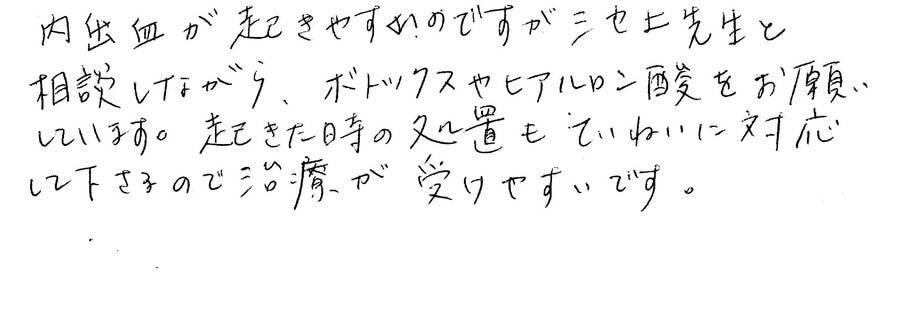 内出血が起きやすいのですがミセ上先生と
相談しながら、ボトックスやヒアルロン酸をお願い
しています。起きた時の処置もていねいに対応
して下さるので治療が受けやすいです。